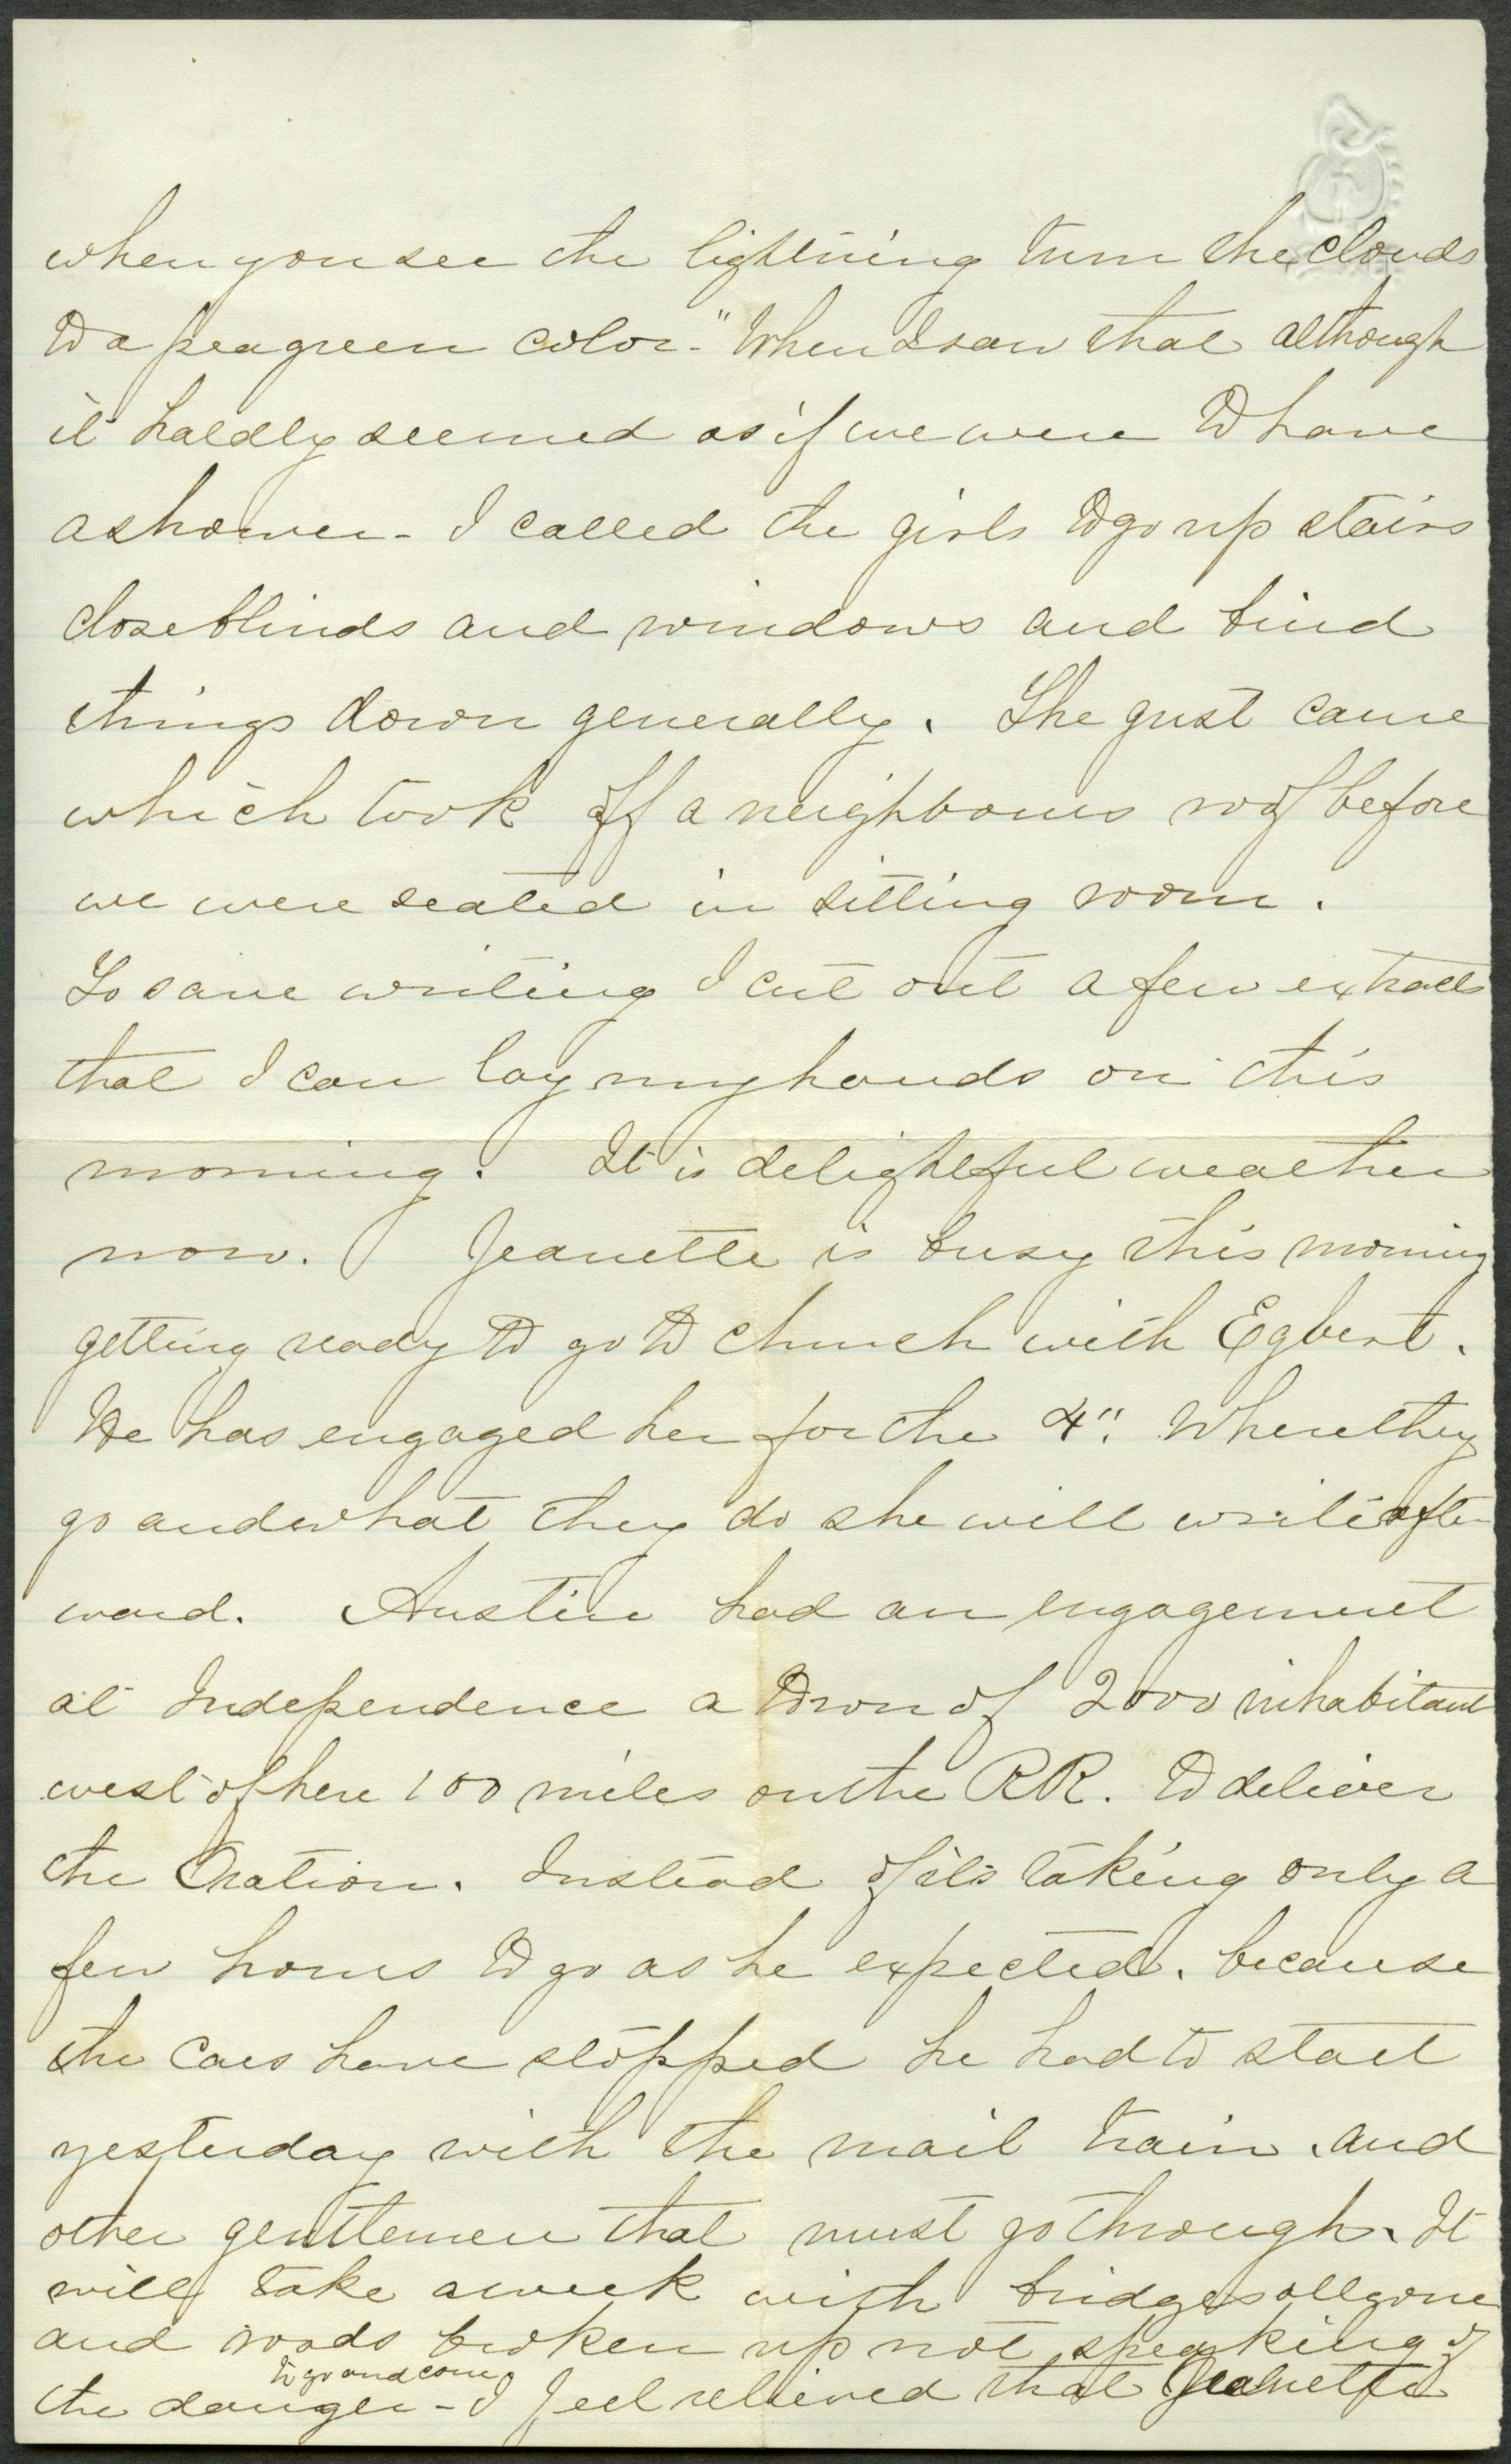 when you see the lightning turn the clouds
to a pea green color -" When I saw that although
it haldly seemed as if we were to have
a shower - I called the girls to go up stairs
close blinds and windows and bind
things down generally. The gust came
which took off a neighbours roof before
we were seated in sitting room.
To save writing I cut out a few extracts
that I can lay my hands on this
morning. It is delightful weather
now. Jeanette is busy this morning
getting ready to go to church with Egbert.
He has engaged her for the 4". Where they
go and what they do she will write after
ward. Austin had an engagement
at Independence a town of 2000 inhabitant
west of here 100 miles on the RR. to deliver
the Oration. Instead of its taking only a
few hours to go as he expected. because
the Cars have stopped he had to start
yesterday with the mail train. and
other gentlemen that must go through. It
will take a week with bridges all gone
and roads broken up not speaking of
to go and come
the danger - I feel relieved that Jeanette